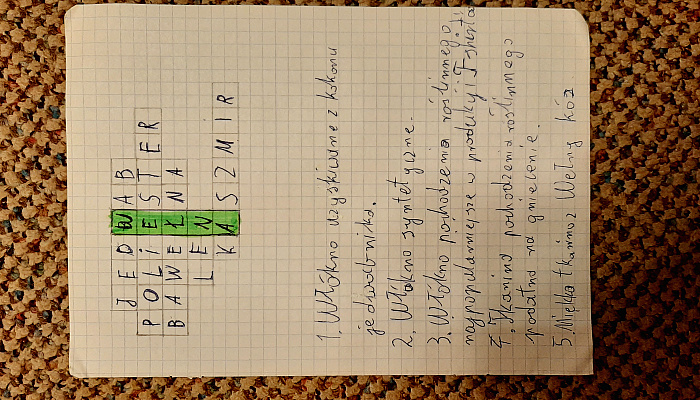 JEDWAB
POLIESTER
BAWEŁNA
LEN
KASZMIR
1. Włókno uzyskiwane z kokonu
jedwabnika.
2. Włókno syntetyczne.
3. Włókno pochodzenia roślinnego,
najpopularniejsze w produkcji
4. Tkanina pochodzenia roślinnego
podatna na gniecenie.
5 Miękka tkanina z Wełny kóz